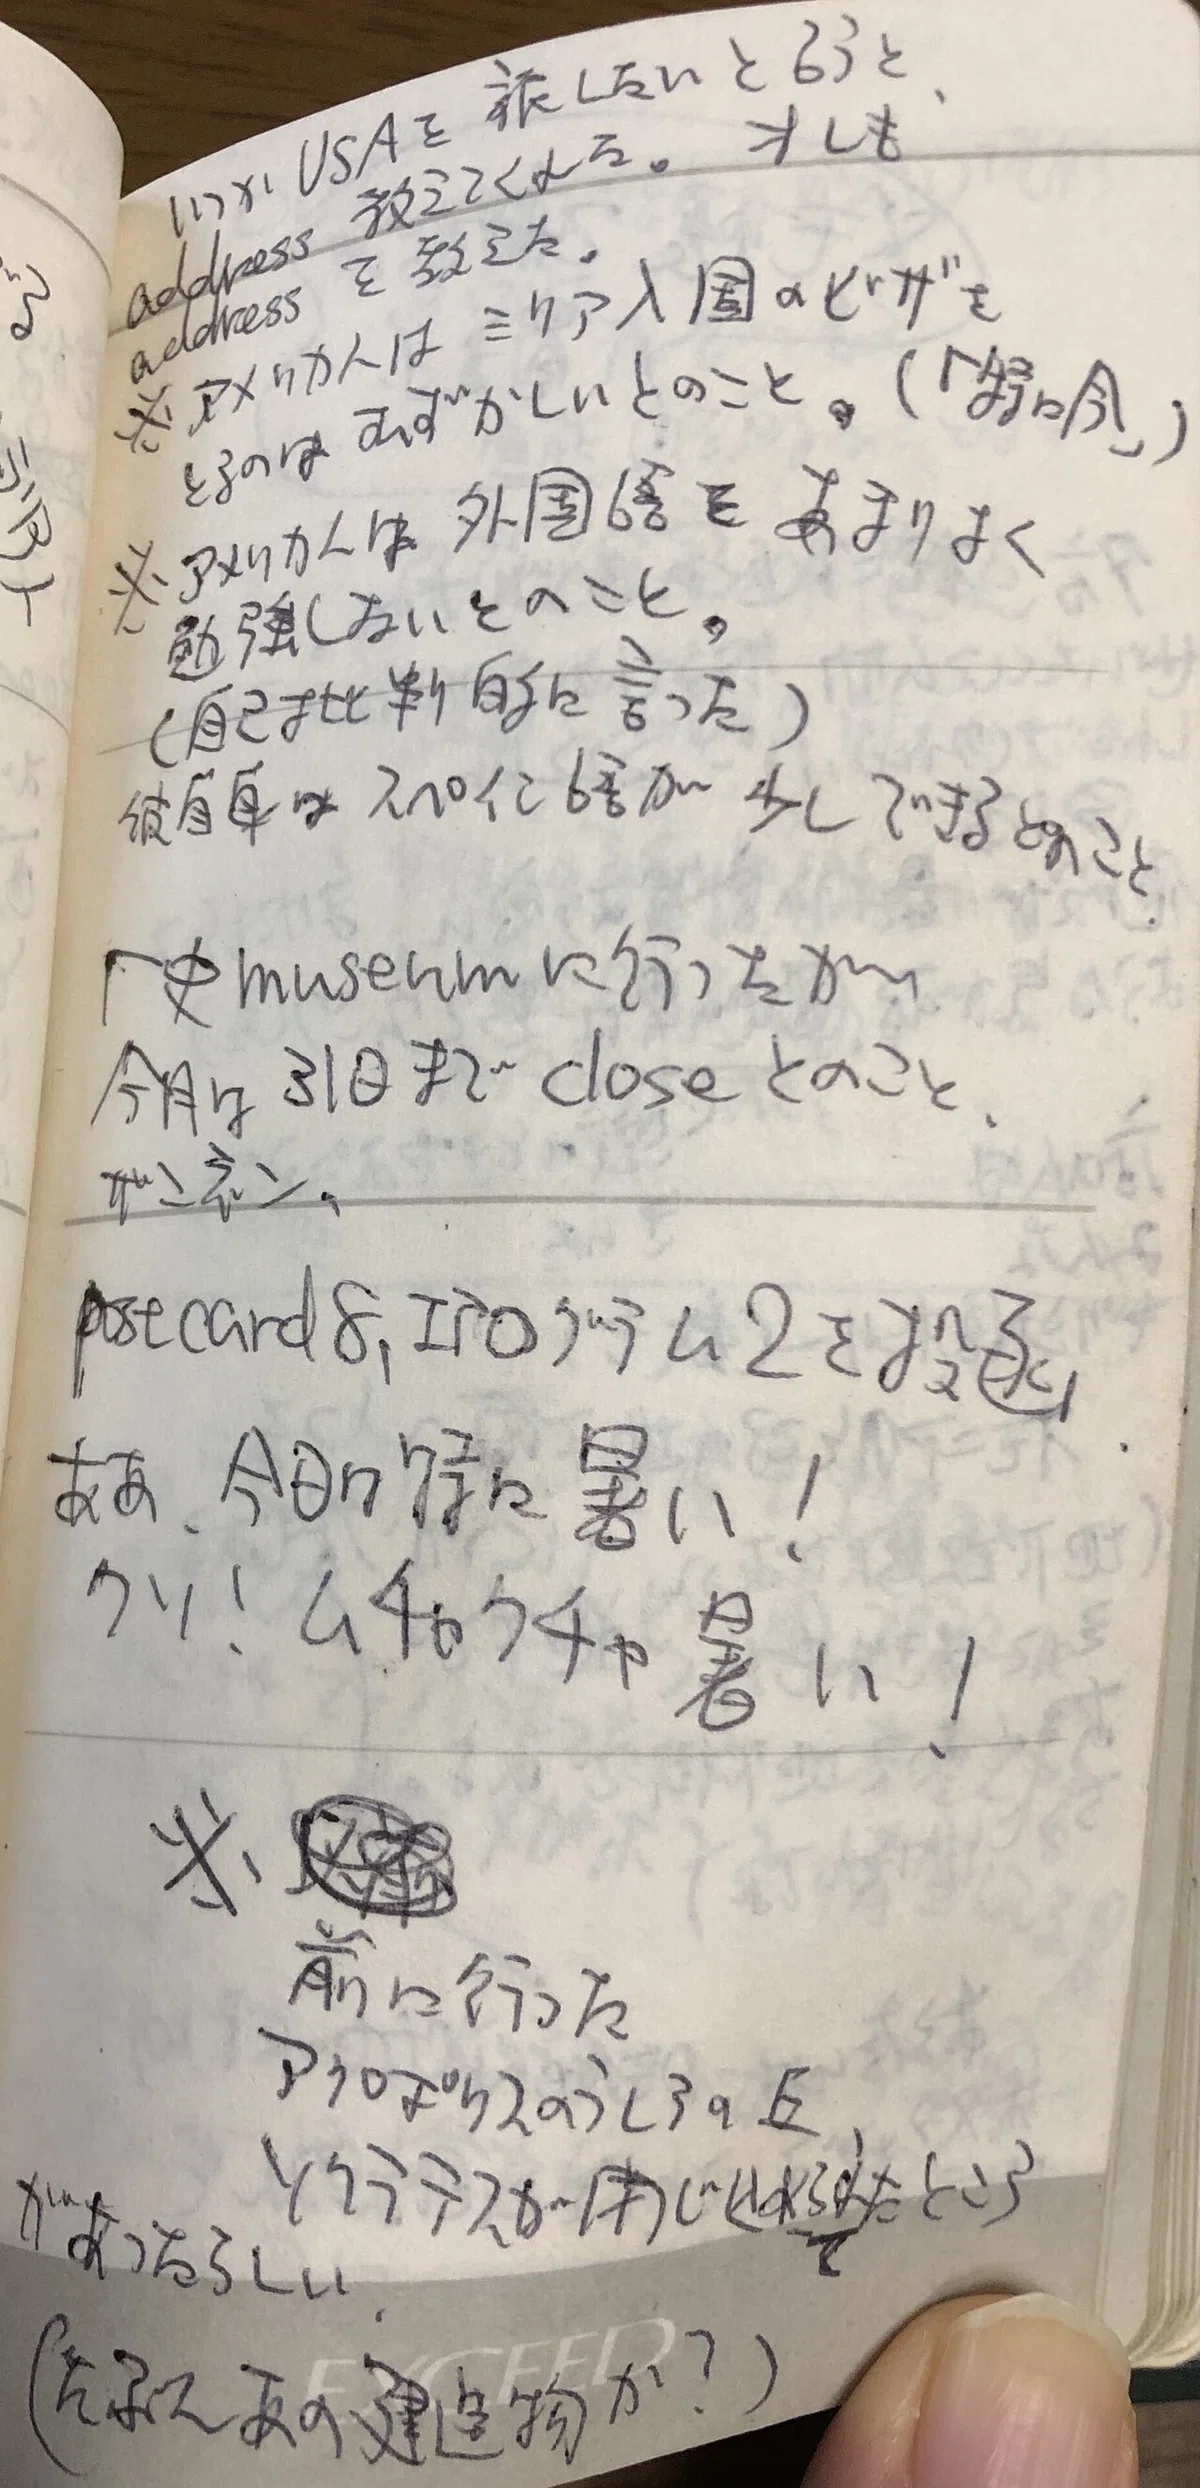 いつか USAを旅したいと言うと、
address 教えてくれた。オレも
address を教えた。
※アメリカ人は シリア入国のビザを
とるのは むずかしいとのこと。(「特に今」)
※アメリカ人は 外国語を あまりよく
勉強しないとのこと。
(自己批判的に言った)
彼自身は スペイン語が 少しできるとのこと.
museumに行ったが、
今月は31日まで closeとのこと、
ザンネン、
postcard 8, エアログラム 2を
ああ、今日は特に暑い!
クソ! ムチャクチャ暑い!
※、
前に行った
アクロポリスのうしろの丘、
ソクラテスが閉じこめられてたところ
があったらしい.
(たぶん あの建造物か?)
EXCEED